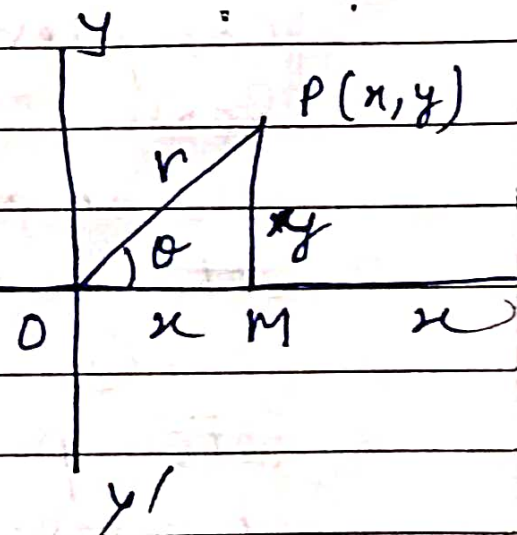 y
P(x,y)
r
y
θ
O x M x
y'